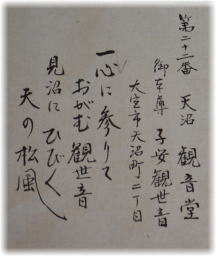 第二十二番 天沼 観音堂
御本尊 子安観世音
大宮市天沼町二丁目
一心に参りて
おがむ観世音
見沼にひびく
天の松風